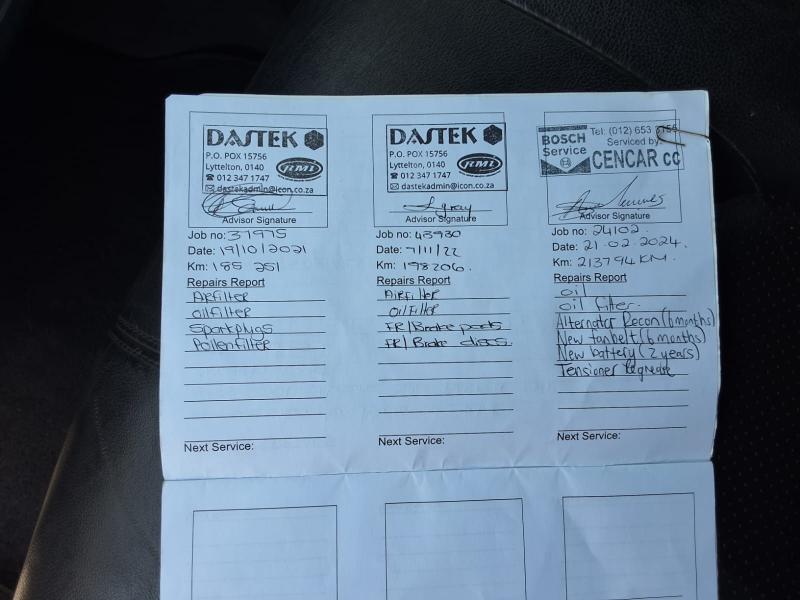 DASTEK
P.O. POX 15756
Lyttelton, 0140
RMI
☎ 012 347 1747
✉ dastekadmin@icon.co.za
Advisor Signature
Job no: 37975
Date: 19/10/2021
Km: 185 251
Repairs Report
Airfilter
oilfilter
Sparkplugs
Pollenfilter
Next Service:
DASTEK
P.O. POX 15756
Lyttelton, 0140
RMI
☎ 012 347 1747
✉ dastekadmin@icon.co.za
Advisor Signature
Job no: 43930
Date: 7/11/22
Km: 198206.
Repairs Report
Airfilter
oilfilter
FR/Brake pads
FR/Brake discs.
Next Service:
BOSCH
Service
Tel: (012) 653
Serviced by:
CENCAR cc
Advisor Signature
Job no: 24102.
Date: 21-02-2024.
Km: 213794 KM.
Repairs Report
oil
oil filter.
Alternator Recon (6months)
New fanbelt (6 months)
New battery (2 years)
Tensioner Regrease
Next Service: